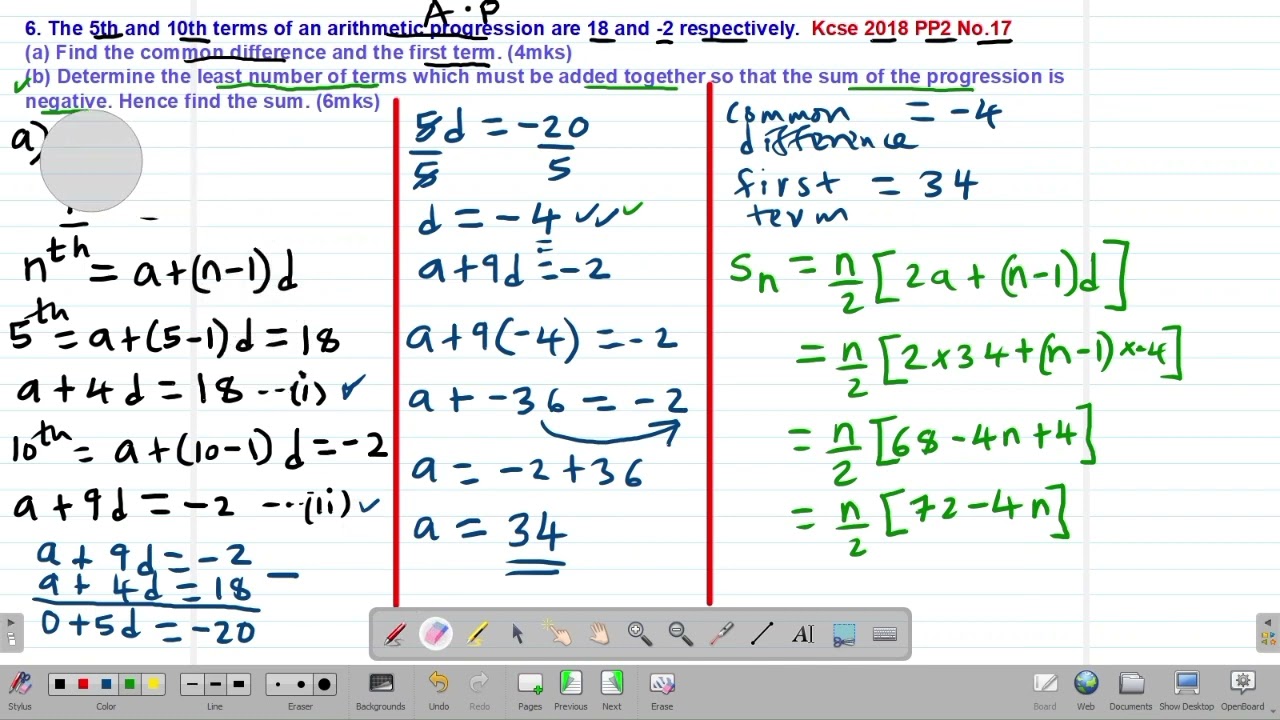 A.P
6. The 5th and 10th terms of an arithmetic progression are 18 and -2 respectively. Kcse 2018 PP2 No.17
(a) Find the common difference and the first term. (4mks)
(b) Determine the least number of terms which must be added together so that the sum of the progression is
negative. Hence find the sum. (6mks)
a)
nth = a+(n-1)d
5th = a+(5-1)d = 18
a + 4d = 18 --(i) ✓
10th = a+(10-1)d = -2
a + 9d = -2 ---(ii) ✓
a + 9d = -2
a + 4d = 18 −
0 + 5d = -20
5d = -20
5 5
d = -4 ✓✓✓
a + 9d = -2
a + 9(-4) = -2
a + -36 = -2
a = -2 + 36
a = 34
common = -4
difference
first = 34
term
Sn = n/2 [2a + (n-1)d]
= n/2 [2×34+(n-1)×-4]
= n/2 [68-4n+4]
= n/2 [72-4n]
Stylus
Color
Line
Eraser
Backgrounds
Undo
Redo
Pages
Previous
Next
Erase
Board
Web
Documents
Show Desktop
OpenBoard